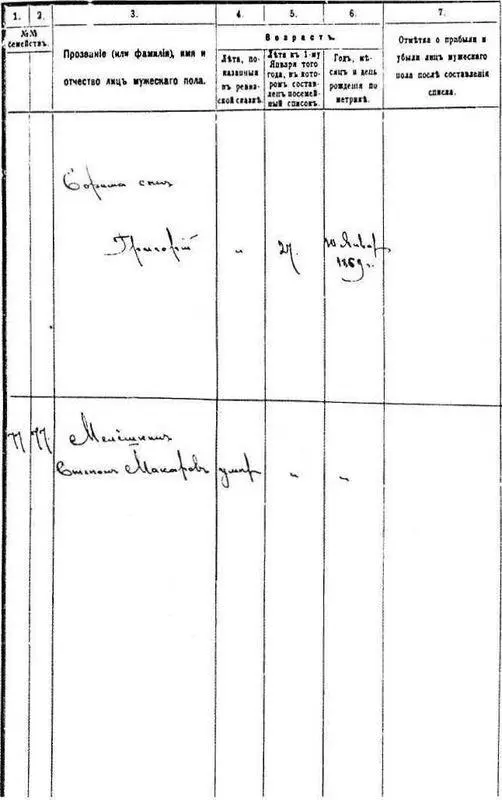 1.
2.
3.
4.
5.
6.
7.
№№
семействъ.
Прозваніе (или фамилія), имя и
отчество лицъ мужескаго пола.
Возрастъ.
Лѣта, по-
казанныя
въ ревиз-
ской сказкѣ.
Лѣта къ 1-му
Января того
года, въ кото-
ромъ состав-
ленъ посемей-
ный списокъ.
Годъ, мѣ-
сяцъ и день
рожденія по
метрикѣ.
Отмѣтка о прибыли и
убыли лицъ мужескаго
пола послѣ составленія
списка.
сынъ
Григорій " 27. 10 Январ
1869 г.
77 77
Степанъ Макаровъ умер " "